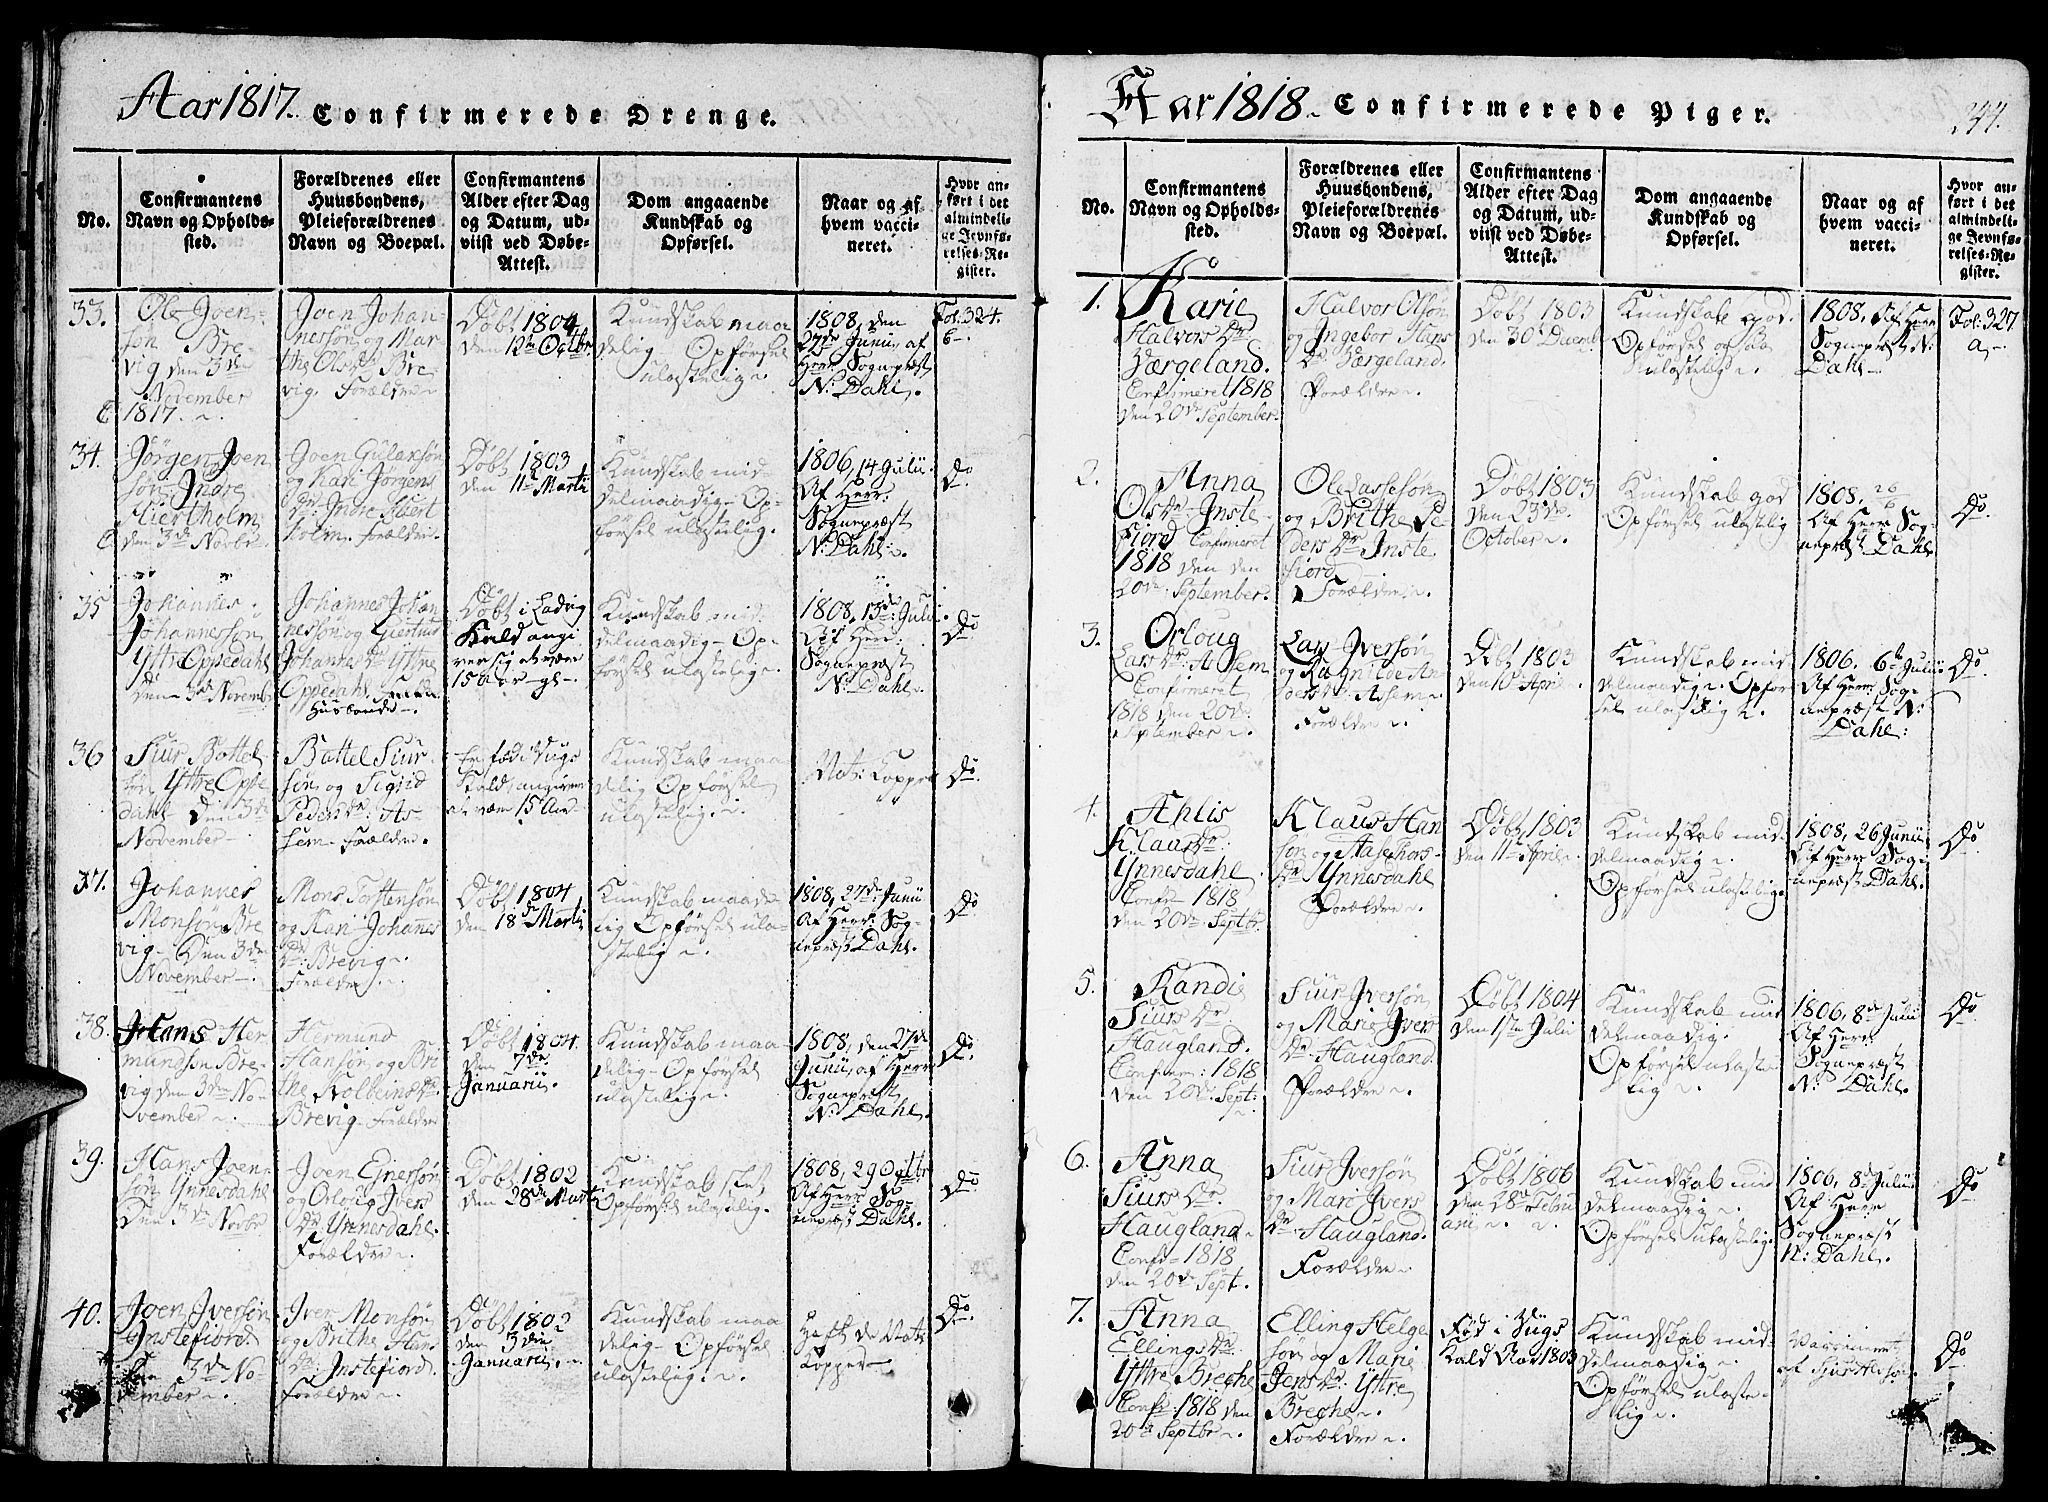 Aar 1817. Confirmerede Drenge.
No.
Confirmantens
Navn og Opholds-
sted.
Forældrenes eller
Huusbondens,
Pleieforældrenes
Navn og Boepæl.
Confirmantens
Alder efter Dag
og Datum, ud-
viist ved Døbe-
Attest.
Dom angaaende
Kundskab og
Opførsel.
Naar og af
hvem vacci-
neret.
Hvor an-
ført i det
almindeli-
ge Jevnfø-
relses-Re-
gister.
33.
Ole Joen-
søn Bre-
vig den 3de
November
1817.
Joen Johan-
nessøn og Mar-
the Olsdr Bre-
vig. Forældre
Døbt 1804
den 12te Octbr
Kundskab maa
delig Opførsel
ulastelig.
1808, den
27de Junii, af
Herr Sognepræst
N: Dahl.
Fol. 324.
6
34.
Jørgen Joen
søn Indre
Hiertholm
den 3de Novbr
Joen Gullaksøn
og Kari Jørgens
dr: Indre Hiert
holm. Forældre.
Døbt 1803
den 11te Marti
Kundskab mid
delmaadig Op-
førsel ulastelig.
1806, 14 Julii
Af Herr:
Sognepræst
N: Dahl.
Do.
35
Johannes
Johannessøn
Yttre Oppedahl
den 3de Novemb
Johannes Johan
nessøn og Giertrud
Johannes dr Yttre
Oppedahl
Huusbonde
Døbt i Ladvig
Kald angi
ver sig at være
15 Aar gl
Kundskab mid
delmaadig Op-
førsel ulastelig.
1808, 13de Julii
Af Herr
Sognepræst
N: Dahl.
Do
36
Siur Bottel
søn Yttre Oppe
dahl den 3de
November
Battel Siur
søn og Sigrid
Pedersdr: As-
sem Forældre.
Er fød i Vugs
Kald, angiven
at være 15 Aar
Kundskab maa
delig Opførsel
ulastelig.
Nat: Kopper
Do.
37.
Johannes
Monsøn Bre
vig Den 3de
November
Mons Torstensøn
og Kari Johannes
dr: Brevig.
Forældre.
Døbt 1804
den 18de Marti
Kundskab maade
lig Opførsel ula-
stelig.
1808, 27de Junii
Af Herr: Sog-
nepræst Dahl.
Do
38.
Hans Her
mundsøn Bre-
vig den 3de No-
vember
Hermund
Hansøn og Bri
the Kolbeinsdr:
Brevig Forældre
Døbt 1804.
den 7de
Januarii
Kundskab maa
delig Opførsel
ulastelig.
1808, den 27de
Junii, af Herr
Sognepræst
N: Dahl.
Do.
39.
Hans Joen-
søn Ynnesdahl
Den 3de Novbr
Joen Ejnersøn
og Orloug Ivers
dr Ynnesdahl.
Forældre
Døbt 1802
den 28de Marti
Kundskab slet,
Opførsel ulastelig.
1808, 29 Octbr
Af Herr Sog-
nepræst Dahl.
Do
40.
Joen Iversøn
Instefiord.
Den 3de No-
vember
Iver Monsøn
og Brithe Hans
dr: Instefiord.
Forældre
Døbt 1802
den 3die
Januarii
Kundskab maa
delig Opførsel
ulastelig.
Haft de Nat:
Kopper
Do.
Aar 1818. Confirmerede Piger.
344.
No.
Confirmantens
Navn og Opholds-
sted.
Forældrenes eller
Huusbondens,
Pleieforældrenes
Navn og Boepæl.
Confirmantens
Alder efter Dag
og Datum, ud-
viist ved Døbe-
Attest.
Dom angaaende
Kundskab og
Opførsel.
Naar og af
hvem vacci-
neret.
Hvor an-
ført i det
almindeli-
ge Jevnfø-
relses-Re-
gister.
1.
Karie
Halvors Dr
Værgeland.
Confirmeret 1818
den 20de September.
Halvor Olsøn
og Ingebor Hans
Dr Værgeland.
Forældre.
Døbt 1803
den 30 Decemb
Kundskab god
Opførsel
ulastelig.
1808, Af Herr
Sognepræst N:
Dahl
Fol. 327.
a.
2.
Anna
Olsdr Inste
fiord Confirmeret
1818 den
20de September.
Ole Lassesøn
og Brithe Pe
ders dr Inste
fiord
Forældre.
Døbt 1803
den 23de
October
Kundskab god
Opførsel ulastelig
1808, 26/6
Af Herr Sog-
nepræst Dahl
Do.
3.
Orloug
Lars dr: Assem
Confirmeret
1818 den 20de
September
Lars Iversøn
og Ragnilde An
dersdr: Assem
Forældre.
Døbt 1803
den 10 April
Kundskab mid
delmaadig. Opfør
sel ulastelig
1806, 6te Julii
Af Herr Sog-
nepræst N:
Dahl:
Do.
4.
Ahlis
Klaus dr:
Ynnesdahl
Confr 1818
den 20de Septbr
Klaus Han
søn og Aase Thors-
dr Ynnesdahl
Forældre.
Døbt 1803
den 11te April
Kundskab mid-
delmaadig.
Opførsel ulastelig.
1808, 26 Junii
Af Herr Sog-
nepræst Dahl.
Do.
5.
Randi
Siurs Dr.
Haugland.
Confirm: 1818
den 20de Sept:
Siur Iversøn
og Marie Ivers
Dr Haugland
Forældre.
Døbt 1804
den 1ste Julii
Kundskab mid
delmaadig.
Opførsel ulaste-
lig
1806, 8de Julii
Af Herr
Sognepræst
N: Dahl.
Do
6.
Anna
Siurs Dr:
Haugland
Confr 1818
den 20de Sept.
Siur Iversøn
og Mari Ivers
dr Haugland.
Forældre.
Døbt 1806
den 28de Febru
arii
Kundskab mid
delmaadig.
Opførsel ulastelig.
1806, 8de Julii
Af Herr
Sognepræst
N: Dahl.
Do
7.
Anna
Ellings Dr:
Yttre Breche
Confr: 1818 den
20de Septbr
Elling Helge
søn og Marie
Jens dr: Yttre
Breche.
Forældre
Fød i Vugs
Kald Aar 1803
Kundskab mid-
delmaadig.
Opførsel ulaste-
lig.
Vaccineret
af
Do